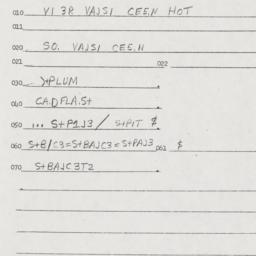 010 VI 3R VAJSI CEEN HOT
011
020 SO. VAJSI CEE.N
021 022
030 >+PLUM
040 CA.DFLA.S+
050 ... S+P1J3 / S+PIT $
060 S+B/C3=S+BAJC3=S+PAJ3 061 $
070 S+BAJC3T2